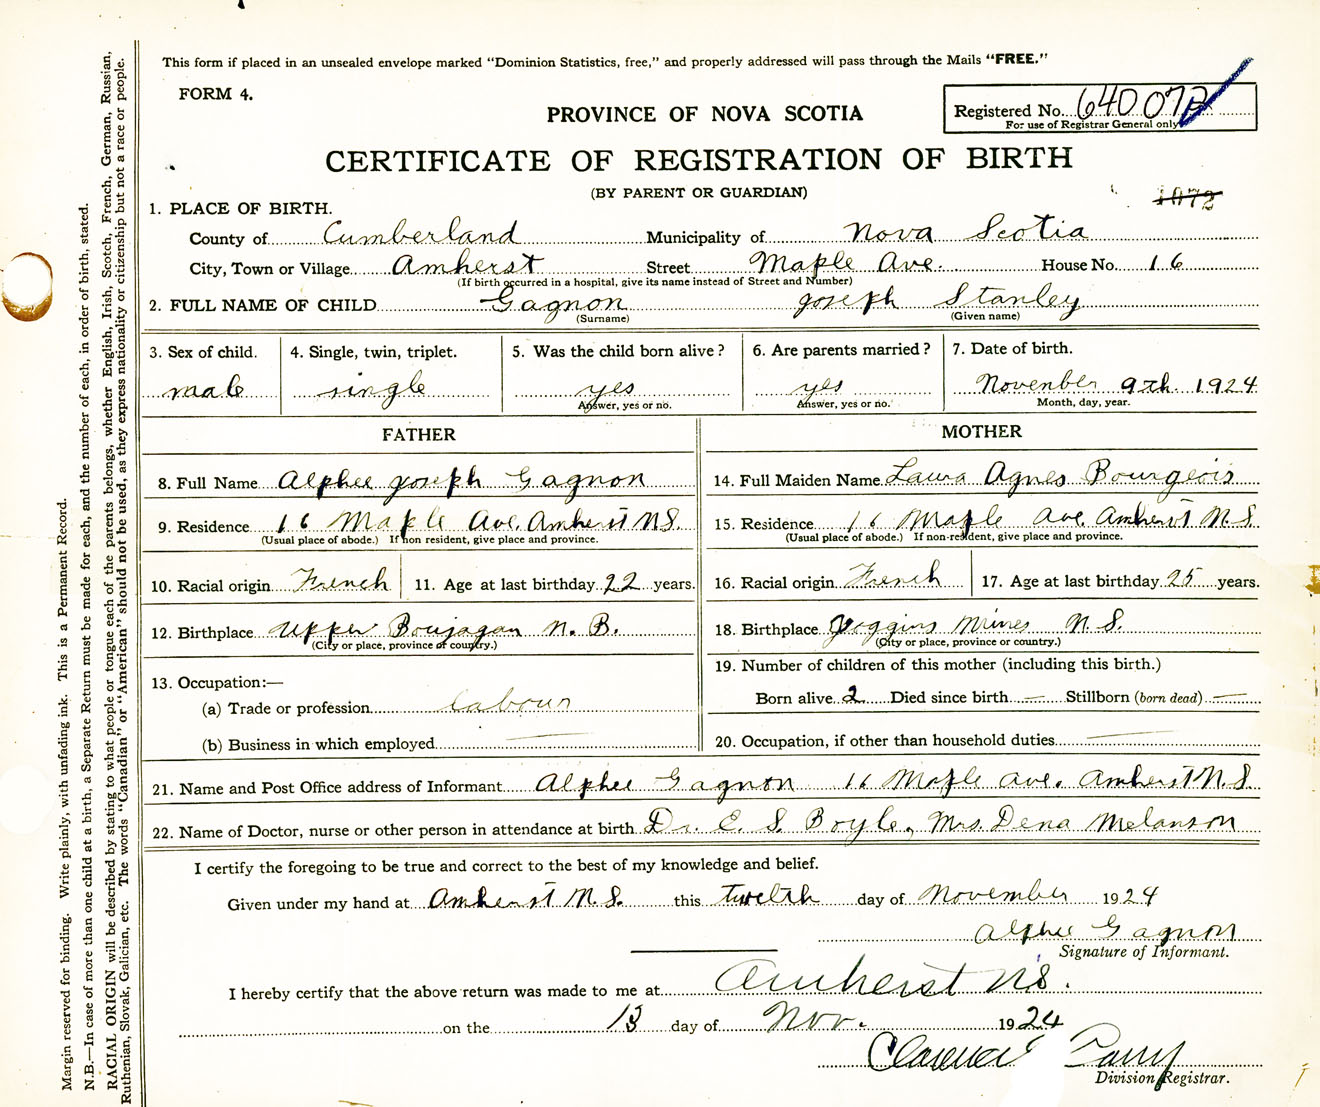 This form if placed in an unsealed envelope marked "Dominion Statistics, free," and properly addressed will pass through the Mails "FREE."
FORM 4.
Registered No. 640072
For use of Registrar General only
PROVINCE OF NOVA SCOTIA
CERTIFICATE OF REGISTRATION OF BIRTH
(BY PARENT OR GUARDIAN)
1072
1. PLACE OF BIRTH.
County of Cumberland Municipality of Nova Scotia
City, Town or Village Amherst Street Maple Ave. House No. 16
(If birth occurred in a hospital, give its name instead of Street and Number)
2. FULL NAME OF CHILD Gagnon Joseph Stanley
(Surname) (Given name)
3. Sex of child. 4. Single, twin, triplet. 5. Was the child born alive? 6. Are parents married? 7. Date of birth.
male single yes yes November 9th. 1924
Answer, yes or no. Answer, yes or no. Month, day, year.
FATHER MOTHER
8. Full Name Alphee Joseph Gagnon 14. Full Maiden Name Laura Agnes Bourgeois
9. Residence 16 Maple Ave. Amherst N.S. 15. Residence 16 Maple Ave Amherst N.S.
(Usual place of abode.) If non resident, give place and province. (Usual place of abode.) If non-resident, give place and province.
10. Racial origin French 11. Age at last birthday 22 years. 16. Racial origin French 17. Age at last birthday 25 years.
12. Birthplace Upper Boujagan N. B. 18. Birthplace Joggins Mines N.S.
(City or place, province or country.) (City or place, province or country.)
13. Occupation:— 19. Number of children of this mother (including this birth.)
(a) Trade or profession labour Born alive 2 Died since birth — Stillborn (born dead) —
(b) Business in which employed — 20. Occupation, if other than household duties —
21. Name and Post Office address of Informant Alphee Gagnon 16 Maple Ave. Amherst N.S.
22. Name of Doctor, nurse or other person in attendance at birth Dr. E. S. Boyle, Mrs. Dena Melanson
I certify the foregoing to be true and correct to the best of my knowledge and belief.
Given under my hand at Amherst N.S. this twelth day of November 1924
Alphee Gagnon
Signature of Informant.
I hereby certify that the above return was made to me at Amherst N.S.
on the 13 day of Nov. 1924
Clarence
Division Registrar.
Margin reserved for binding. Write plainly, with unfading ink. This is a Permanent Record.
N.B.—In case of more than one child at a birth, a Separate Return must be made for each, and the number of each, in order of birth, stated.
RACIAL ORIGIN will be described by stating to what people or tongue each of the parents belongs, whether English, Irish, Scotch, French, German, Russian,
Ruthenian, Slovak, Galician, etc. The words "Canadian" or "American" should not be used, as they express nationality or citizenship but not a race or people.